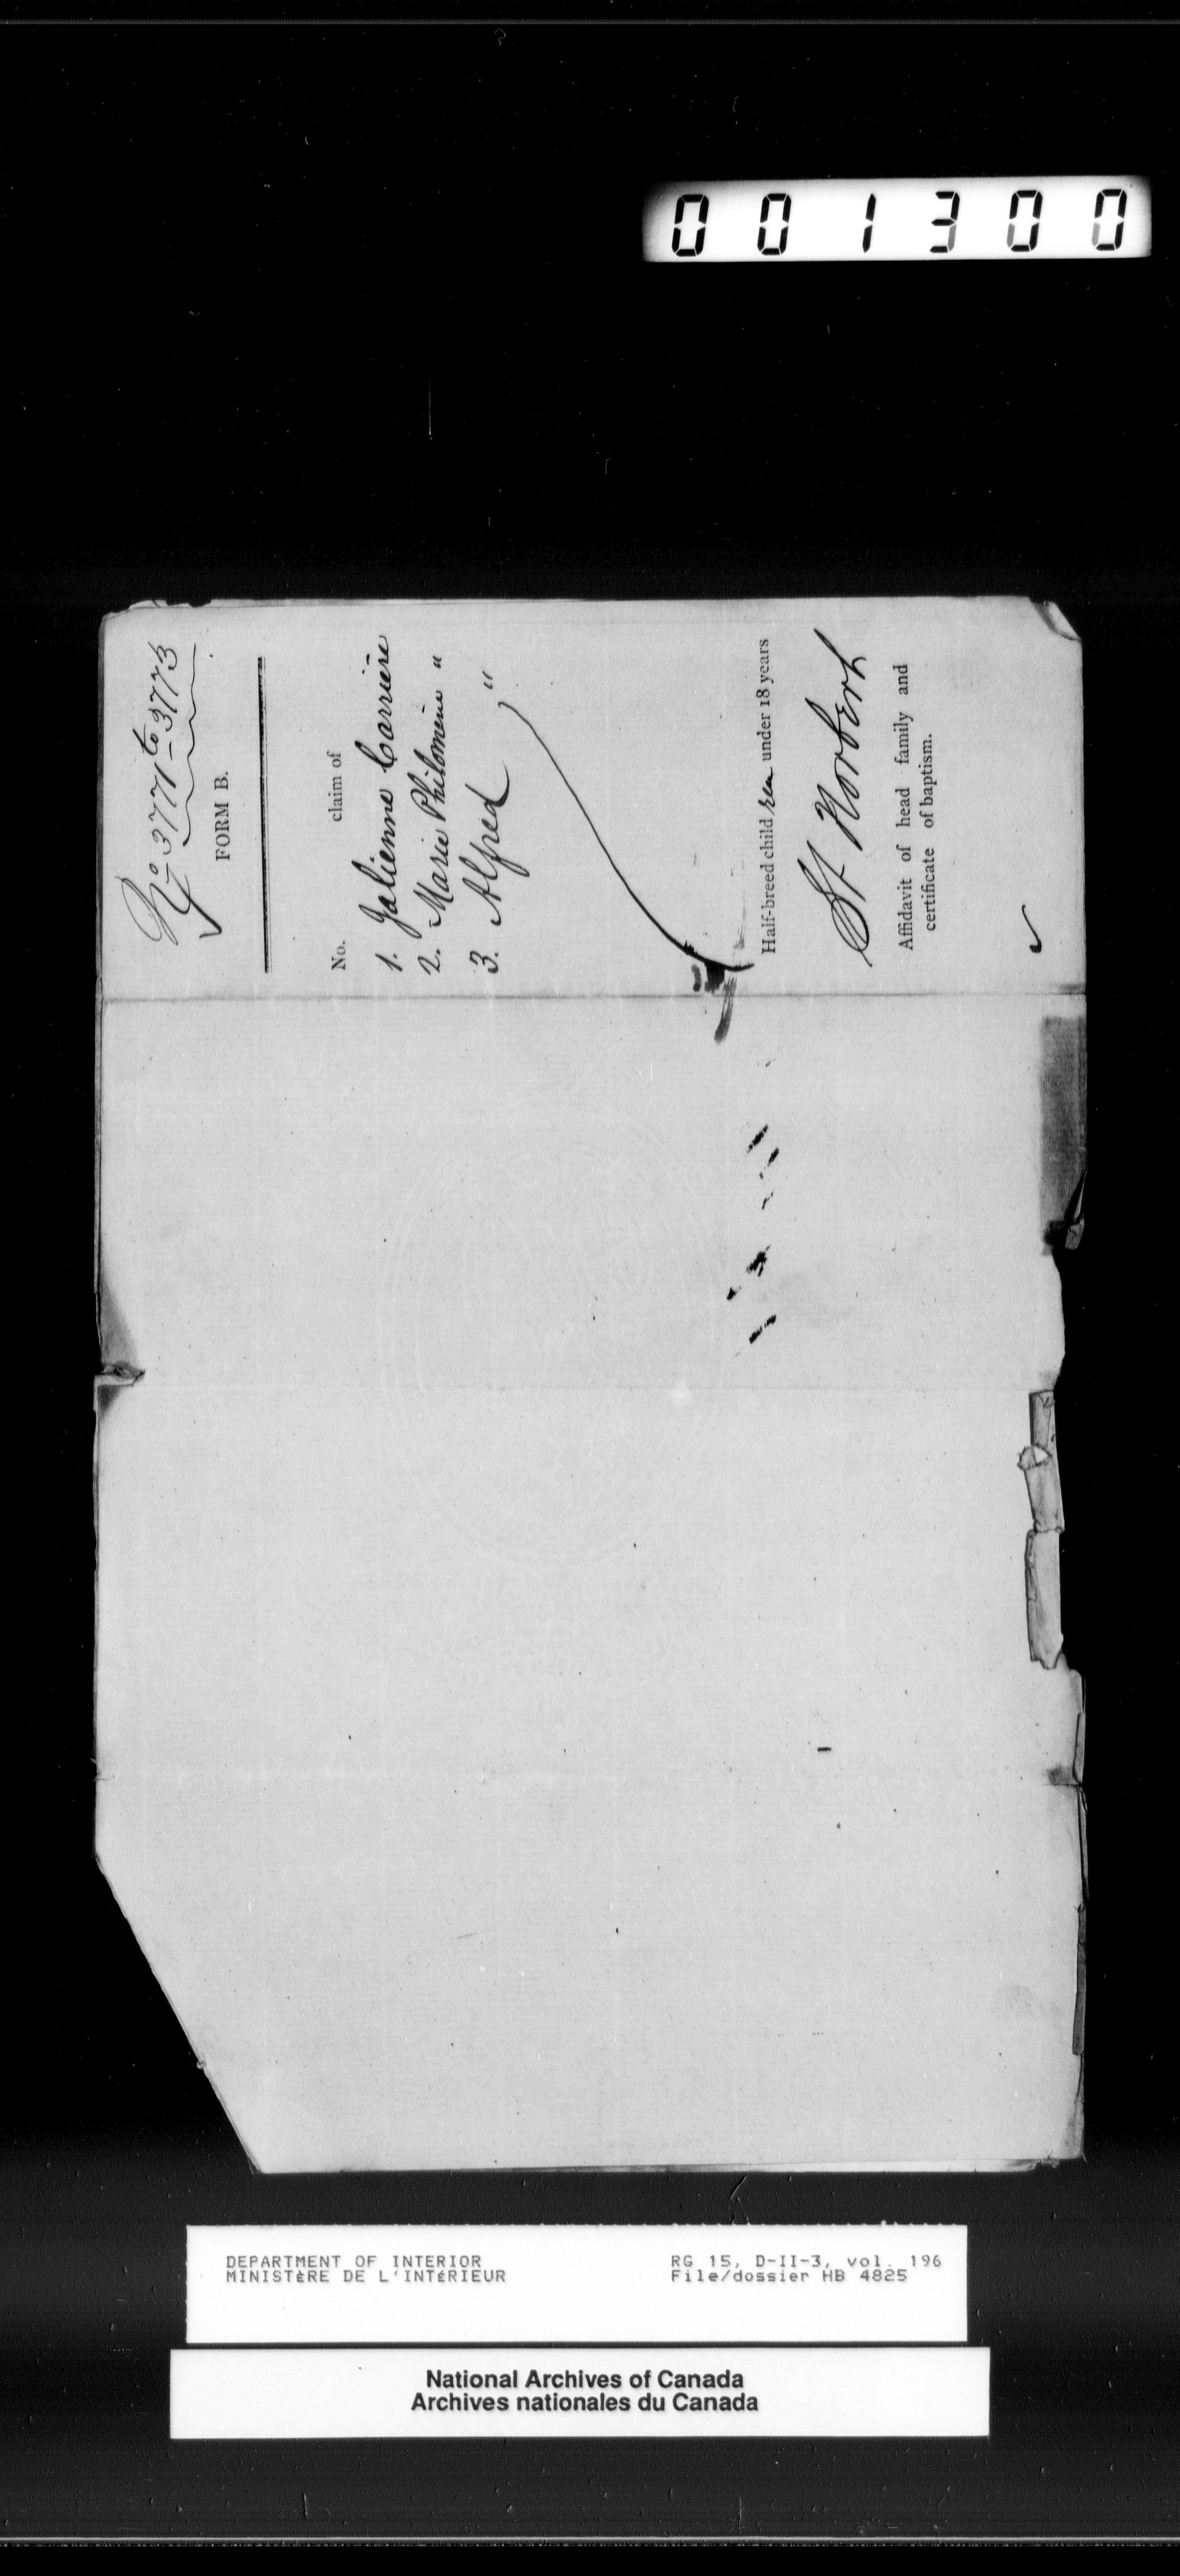 001300
No 3771 to 3773
FORM B.
No. claim of
1. Julienne Carrière
2. Marie Philomène "
3. Alfred "
Half-breed children under 18 years
St Norbert
Affidavit of head family and
certificate of baptism.
DEPARTMENT OF INTERIOR
MINISTÈRE DE L'INTÉRIEUR
RG 15, D-II-3, vol. 196
File/dossier HB 4825
National Archives of Canada
Archives nationales du Canada